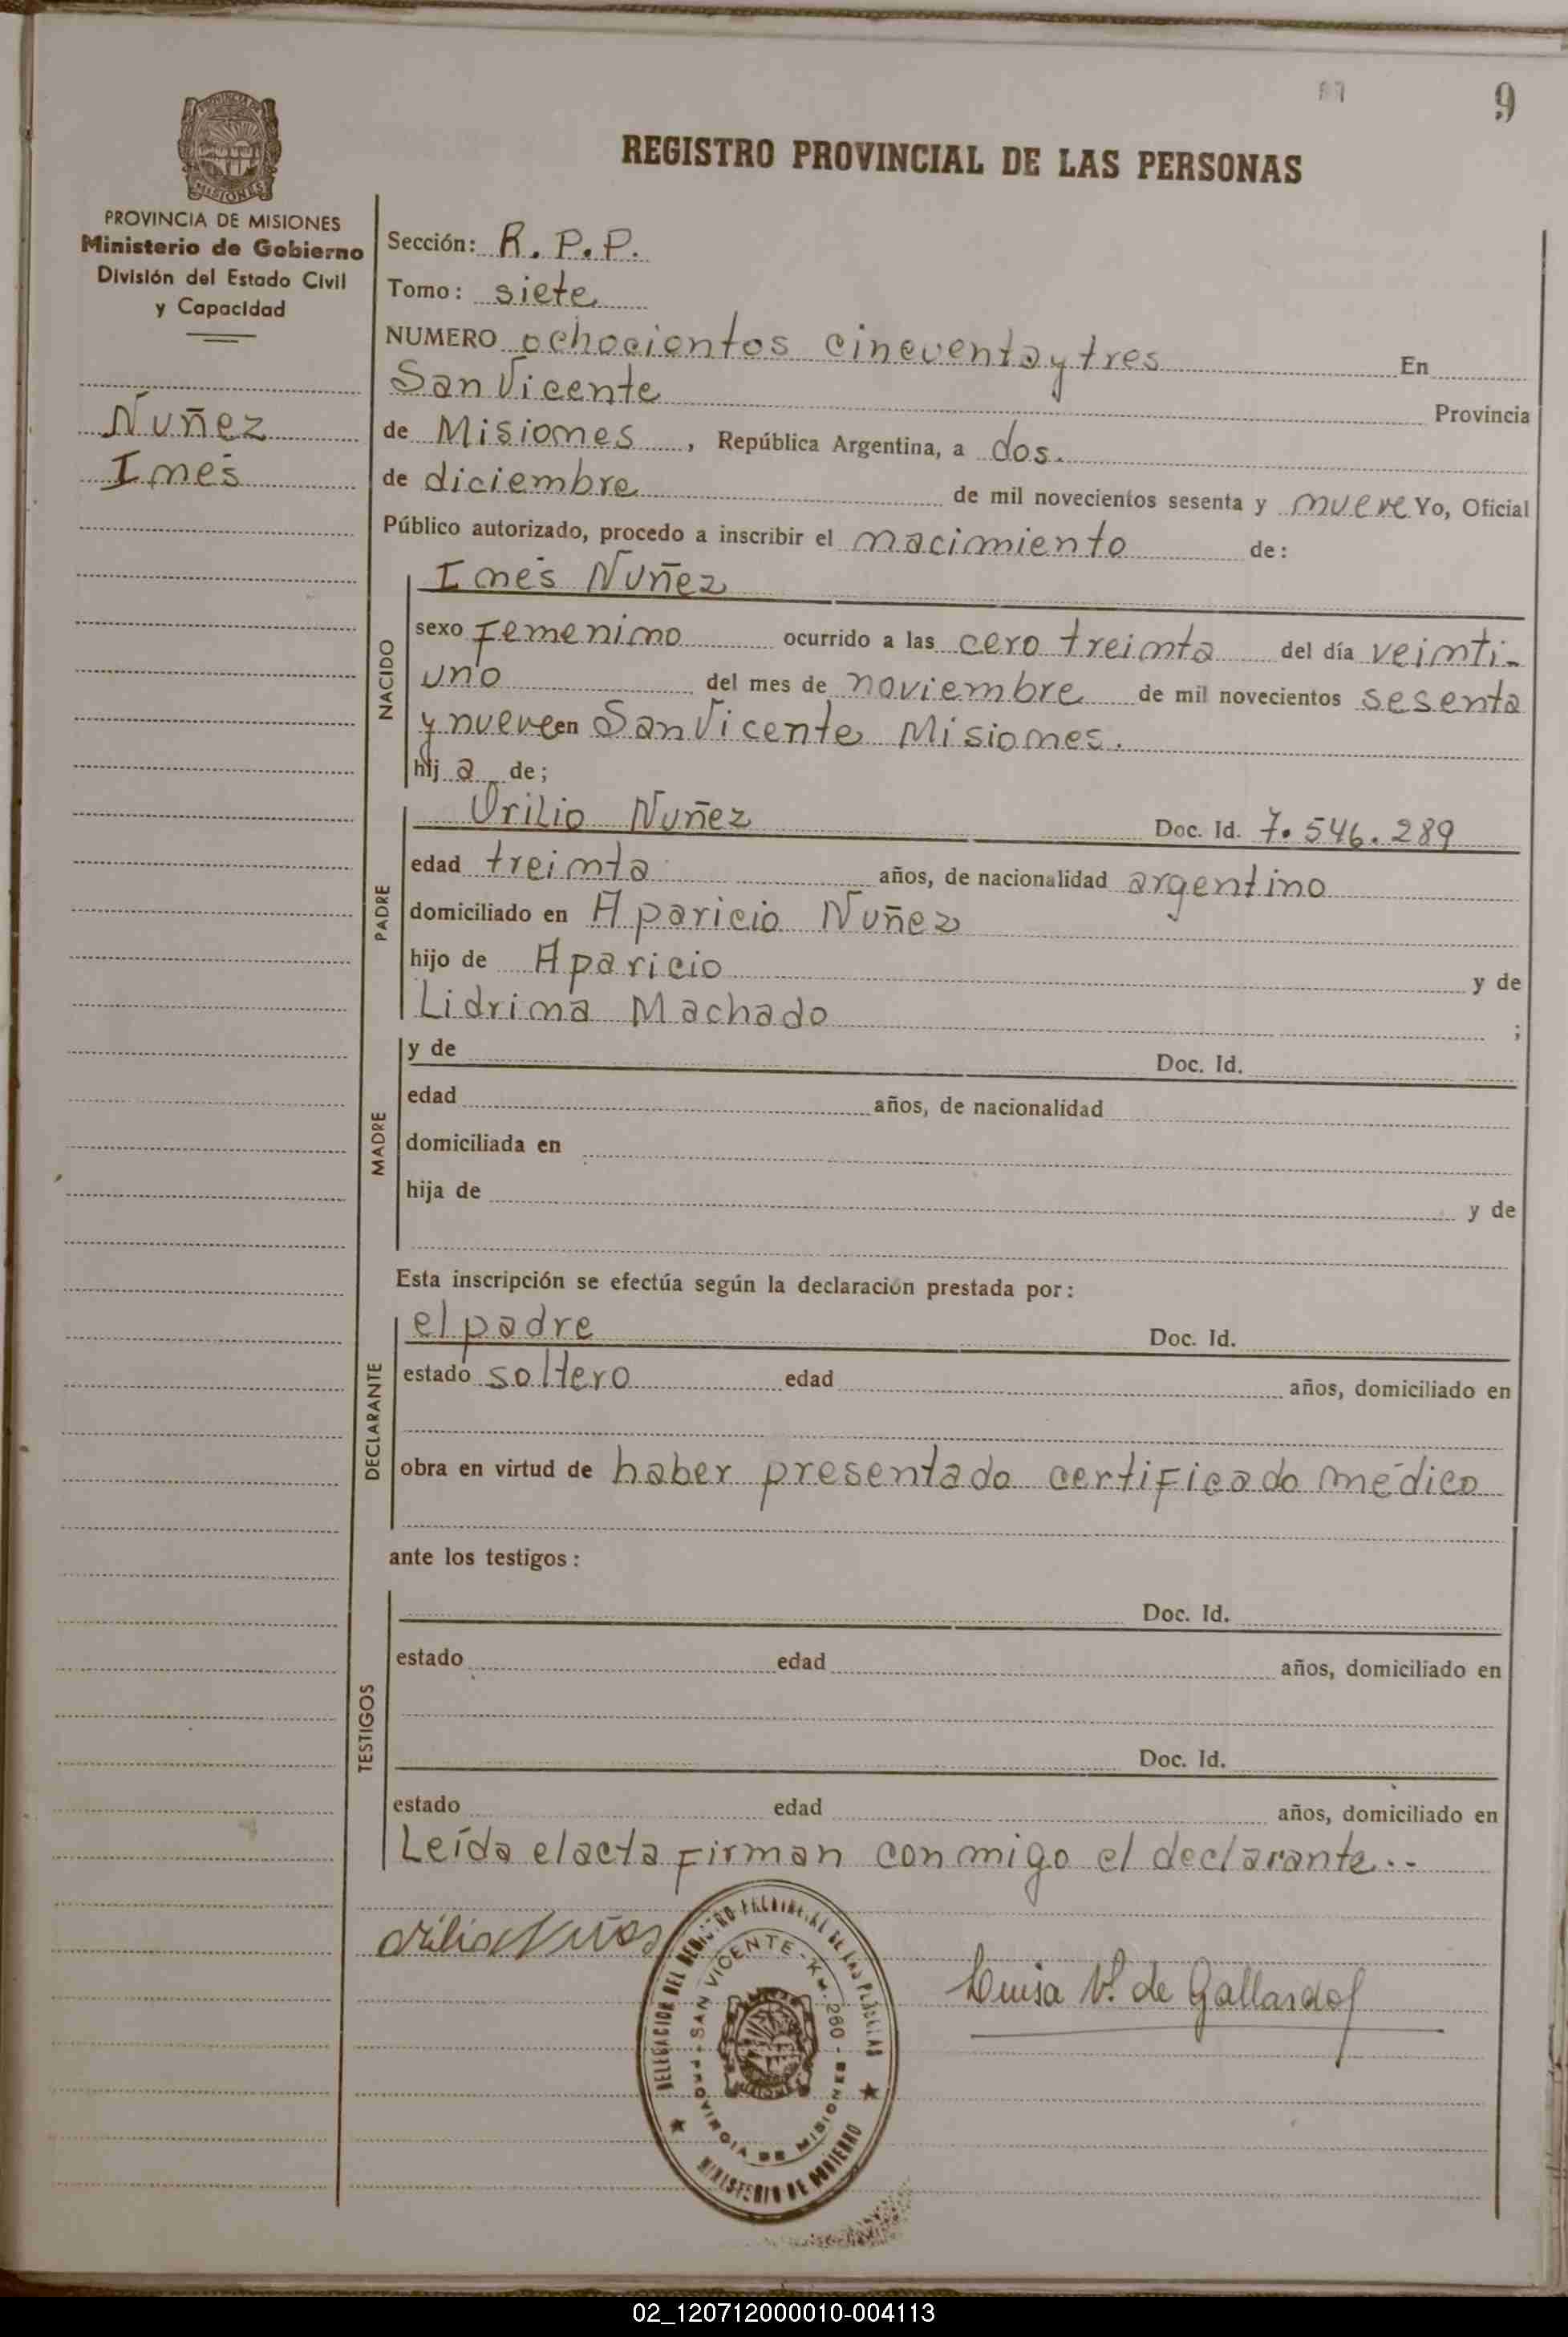 9
REGISTRO PROVINCIAL DE LAS PERSONAS
PROVINCIA DE MISIONES
Ministerio de Gobierno
División del Estado Civil
y Capacidad
Nuñez
Inés
Sección: R.P.P.
Tomo: siete
NUMERO ochocientos cincuenta y tres En
San Vicente Provincia
de Misiones, República Argentina, a dos.
de diciembre de mil novecientos sesenta y nueve Yo, Oficial
Público autorizado, procedo a inscribir el nacimiento de:
NACIDO
Inés Nuñez
sexo Femenino ocurrido a las cero treinta del día veinti-
uno del mes de noviembre de mil novecientos sesenta
y nueve en San Vicente Misiones.
hija de;
PADRE
Orilio Nuñez Doc. Id. 7.546.289
edad treinta años, de nacionalidad argentino
domiciliado en Aparicio Nuñez
hijo de Aparicio y de
Lidrina Machado ;
MADRE
y de Doc. Id.
edad años, de nacionalidad
domiciliada en
hija de y de
Esta inscripción se efectúa según la declaración prestada por:
DECLARANTE
el padre Doc. Id.
estado soltero edad años, domiciliado en
obra en virtud de haber presentado certificado médico
ante los testigos:
TESTIGOS
Doc. Id.
estado edad años, domiciliado en
Doc. Id.
estado edad años, domiciliado en
Leída el acta Firman conmigo el declarante..
Luisa V. de Gallardo
DELEGACION DEL REGISTRO PROVINCIAL DE LAS
SAN VICENTE - KM. 260 -
PROVINCIA DE MISIONES
MINISTERIO DE GOBIERNO
02_120712000010-004113